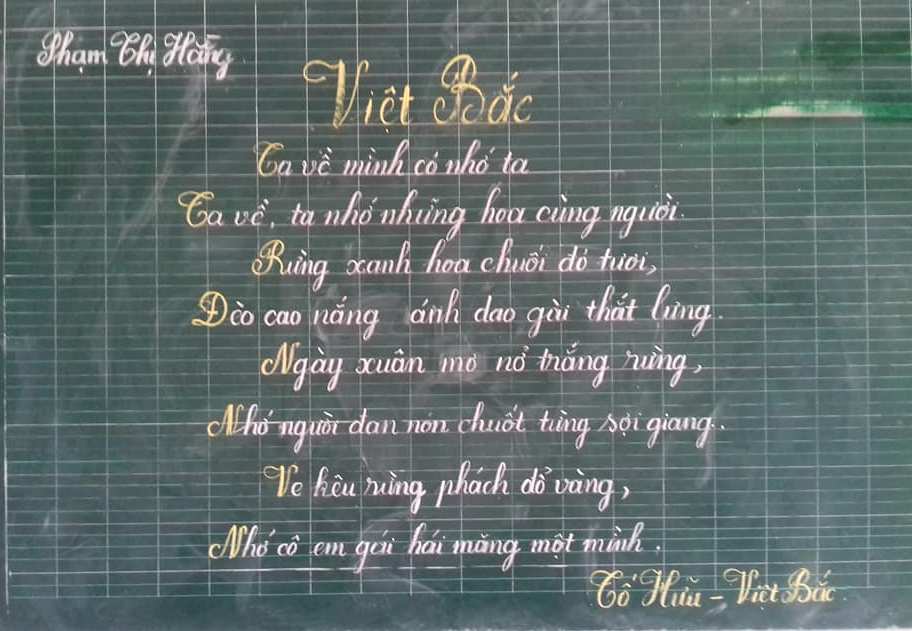 Phạm Thị Hằng
Việt Bắc
Ta về mình có nhớ ta
Ta về, ta nhớ những hoa cùng người.
Rừng xanh hoa chuối đỏ tươi,
Đèo cao nắng ánh dao gài thắt lưng.
Ngày xuân mơ nở trắng rừng,
Nhớ người đan nón chuốt từng sợi giang.
Ve kêu rừng phách đổ vàng,
Nhớ cô em gái hái măng một mình.
Tố Hữu - Việt Bắc